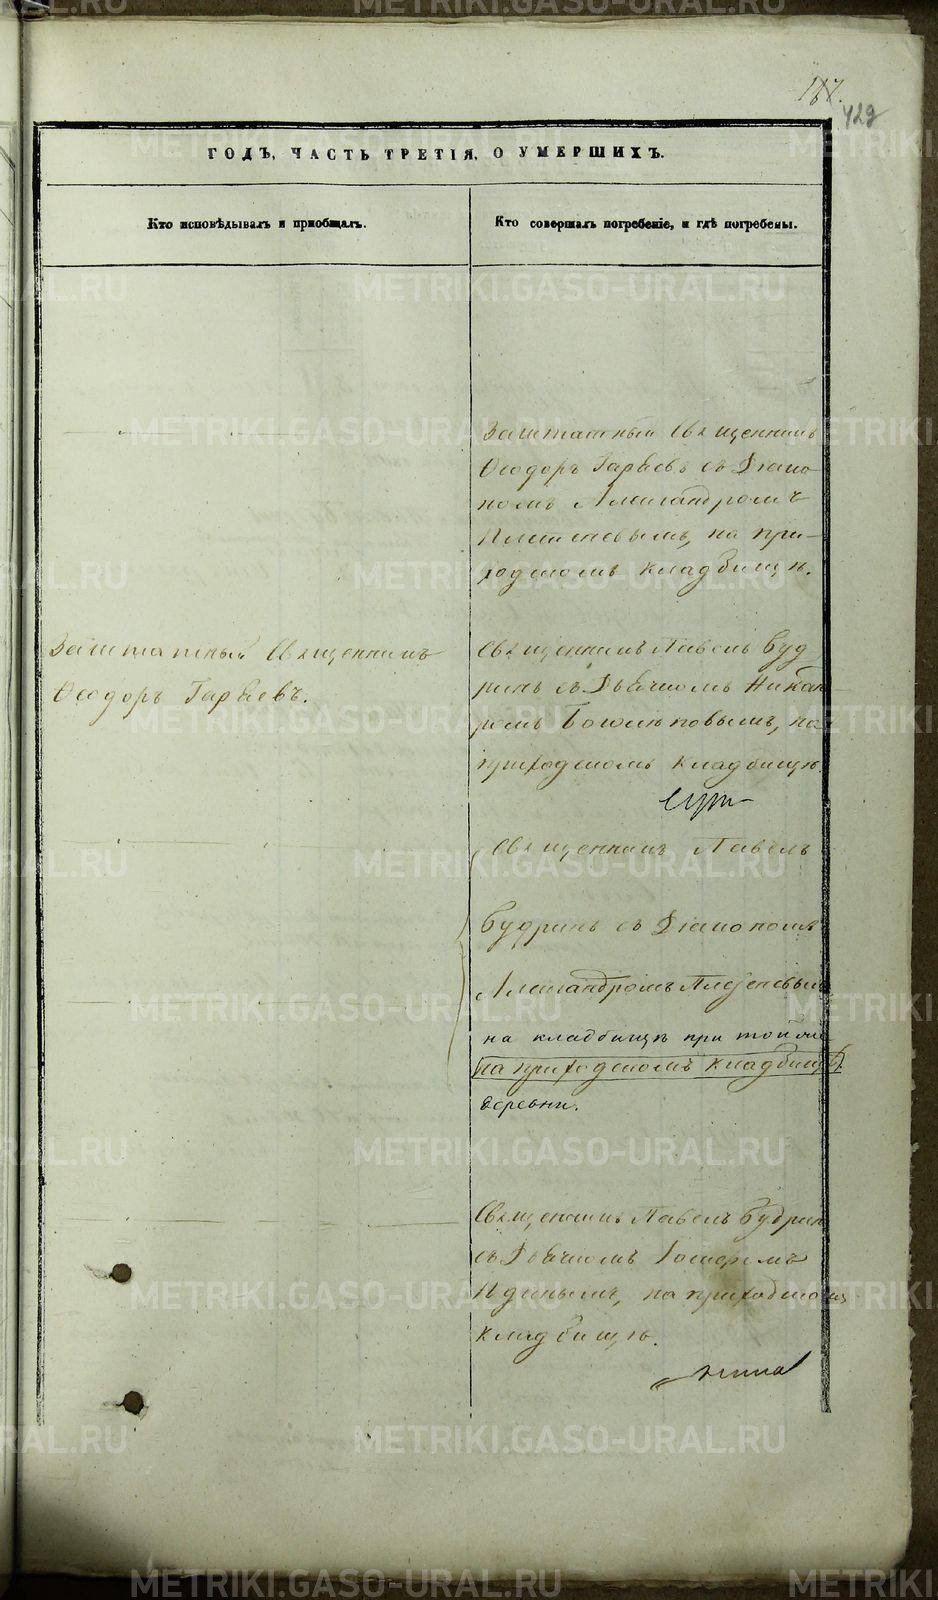 187.
429
ГОДЪ, ЧАСТЬ ТРЕТІЯ, О УМЕРШИХЪ.
Кто исповѣдывалъ и пріобщалъ.
Кто совершалъ погребеніе, и гдѣ погребены.
Заштатный Священникъ
Ѳеодоръ Гаряевъ съ Діако
номъ Александромъ
на при-
ходскомъ кладбищѣ.
Заштатный Священникъ
Ѳеодоръ Гаряевъ.
Священникъ Павелъ Буд
ринъ съ Дьячкомъ Никан
ромъ Боголѣповымъ, на
приходскомъ кладбищѣ.
Священникъ Павелъ
Будринъ съ Діакономъ
Александромъ
на кладбищѣ при той же
на приходскомъ кладбищѣ.
деревни.
Священникъ Павелъ Будрин
съ Дьячкомъ
на приходском
кладбищѣ.
METRIKI.GASO-URAL.RU